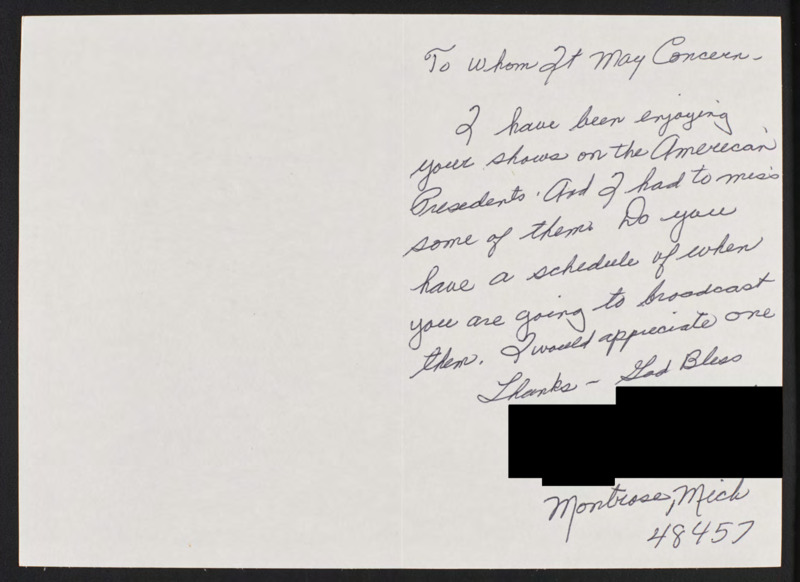 To Whom It May Concern-
I have been enjoying
your shows on the American
Presedents. And I had to miss
some of them. Do you
have a schedule of when
you are going to broadcast
them. I would appreciate one
Thanks - God Bless
Montrose, Mich
48457